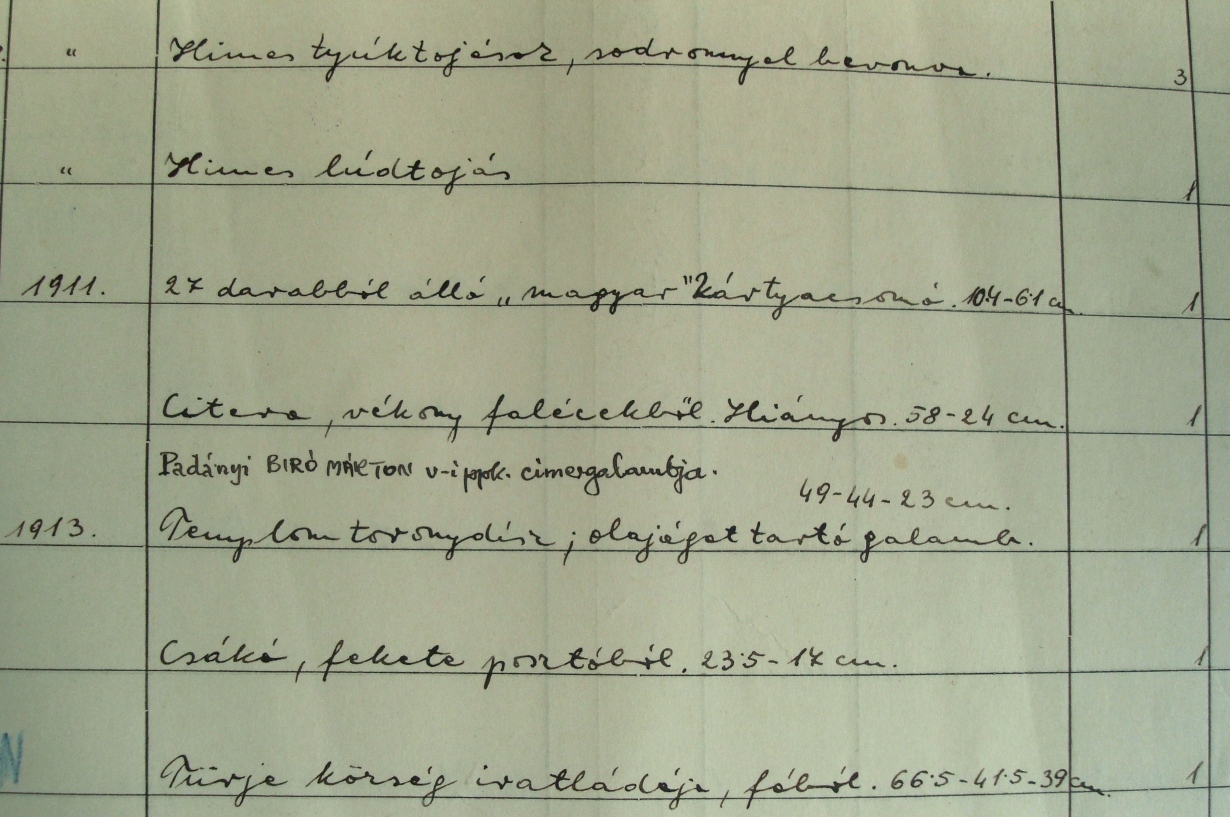 " Himes tyúktojások, sodronnyal bevonva. 3
" Himes lúdtojás 1
1911. 27 darabból álló „magyar" kártyacsomó. 10·4-6·1 cm. 1
Citera, vékony falécekből. Hiányos. 58-24 cm. 1
Padányi BIRÓ MÁRTON v-i ppk. cimergalambja.
49-44-23 cm.
1913. Templom toronydísz; olajágat tartó galamb. 1
Csákó, fekete posztóból. 23·5-17 cm. 1
N
Türje község iratládája, fából. 66·5-41·5-39 cm. 1